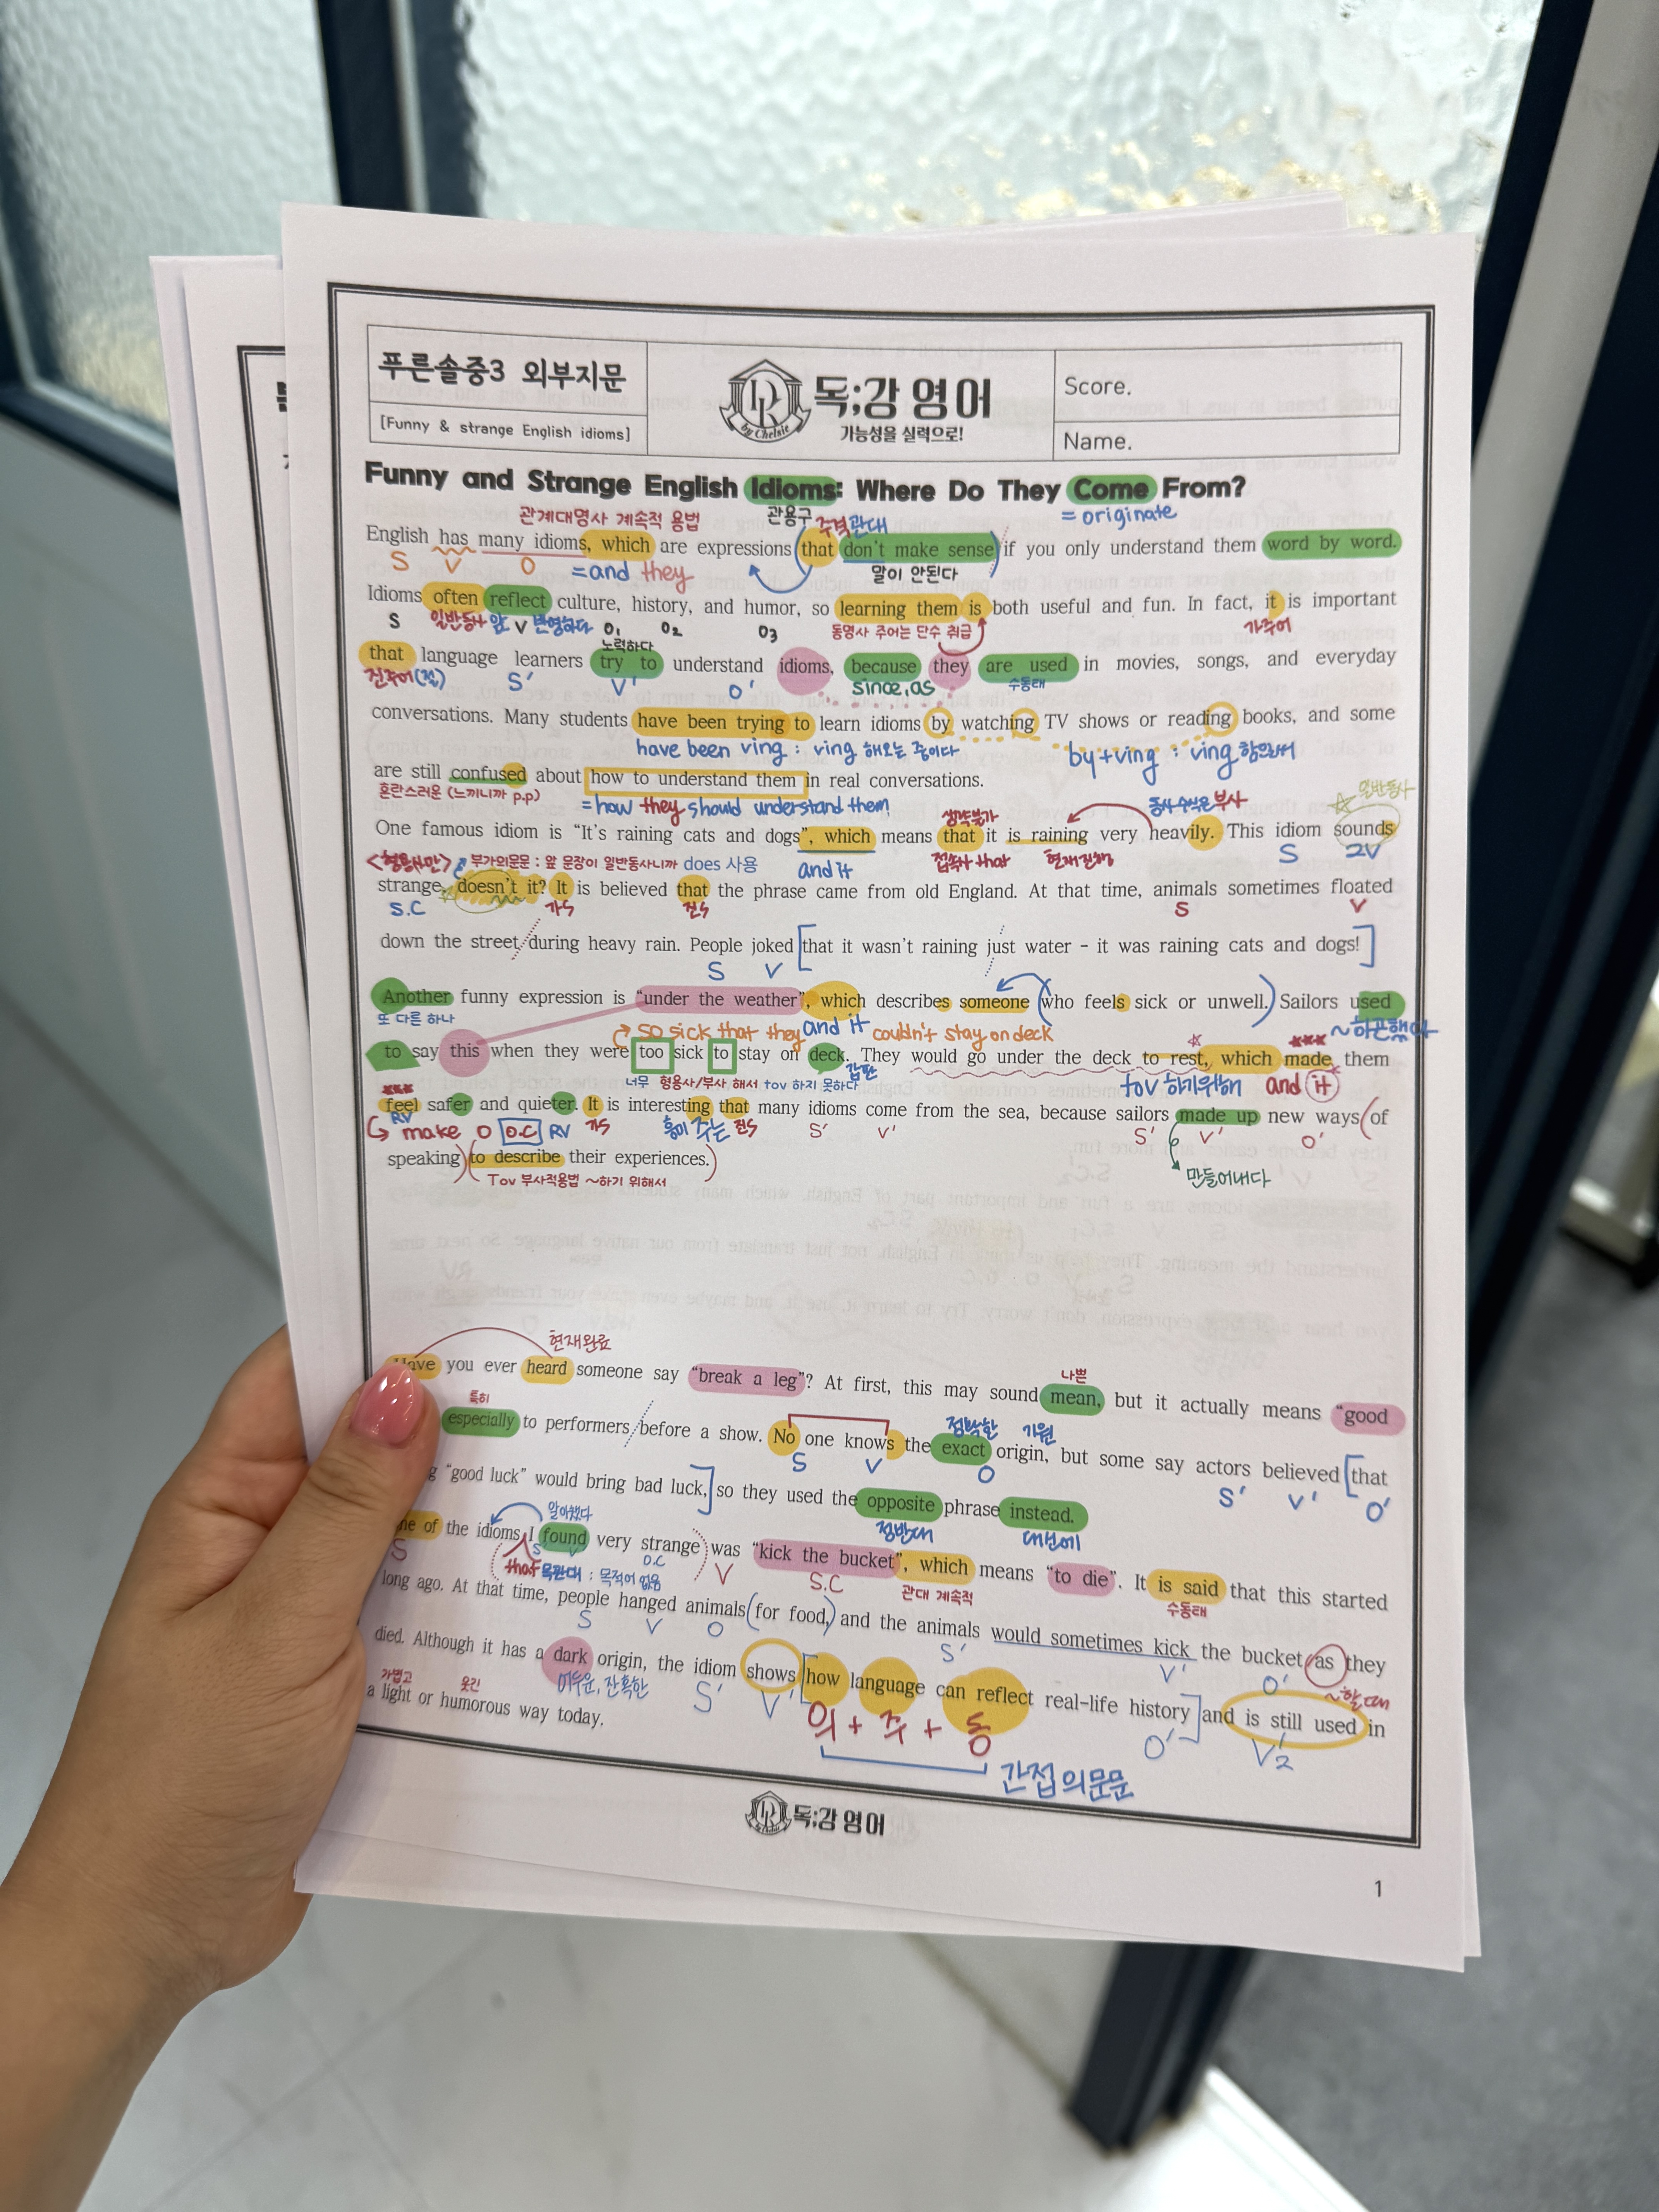 푸른솔중3 외부지문
[Funny & strange English idioms]
DR
by Chelsie
독;강영어
가능성을 실력으로!
Score.
Name.
Funny and Strange English Idioms: Where Do They Come From?
관계대명사 계속적 용법 관용구 주격관대 = originate
English has many idioms, which are expressions that don't make sense if you only understand them word by word.
S V O =and they 말이 안된다
Idioms often reflect culture, history, and humor, so learning them is both useful and fun. In fact, it is important
S 일반동사 앞 V 반영하다 O1 O2 O3 동명사 주어는 단수 취급 가주어
노력하다
that language learners try to understand idioms, because they are used in movies, songs, and everyday
진주어(절) S' V' O' since, as 수동태
conversations. Many students have been trying to learn idioms by watching TV shows or reading books, and some
have been ving : ving 해오는 중이다 by+ving : ving 함으로써
are still confused about how to understand them in real conversations.
혼란스러운 (느끼니까 p.p) =how they should understand them
생략불가 동사수식은 부사 일반동사
One famous idiom is “It's raining cats and dogs”, which means that it is raining very heavily. This idiom sounds
<형용사만> 부가의문문 : 앞 문장이 일반동사니까 does 사용 and it 접속사 that 현재진행 S 2V
strange, doesn't it? It is believed that the phrase came from old England. At that time, animals sometimes floated
S.C 가S 진S S V
down the street during heavy rain. People joked that it wasn't raining just water - it was raining cats and dogs!
S V
Another funny expression is “under the weather”, which describes someone who feels sick or unwell. Sailors used
또 다른 하나 so sick that they and it couldn't stay on deck ~하곤했다
to say this when they were too sick to stay on deck. They would go under the deck to rest, which made them
너무 형용사/부사 해서 tov 하지 못하다 갑판 tov 하기위해 and it
feel safer and quieter. It is interesting that many idioms come from the sea, because sailors made up new ways of
RV
make O O.C RV 가S 흥미 주는 진S S' V' S' V' O'
speaking to describe their experiences.
Tov 부사적용법 ~하기 위해서 만들어내다
현재완료
Have you ever heard someone say “break a leg”? At first, this may sound mean, but it actually means “good
특히 나쁜
especially to performers before a show. No one knows the exact origin, but some say actors believed that
정확한 기원
S V O S' V' O'
“good luck” would bring bad luck, so they used the opposite phrase instead.
알아챘다 정반대 대신에
of the idioms I found very strange was “kick the bucket”, which means “to die”. It is said that this started
S that 목관대 : 목적어 없음 S V O.C V S.C 관대 계속적 수동태
long ago. At that time, people hanged animals for food, and the animals would sometimes kick the bucket as they
S V O S' V' O' ~할 때
died. Although it has a dark origin, the idiom shows how language can reflect real-life history and is still used in
가볍고 웃긴 어두운, 잔혹한 S' V' 의 + 주 + 동 O' V2
a light or humorous way today.
간접의문문
독;강영어
1